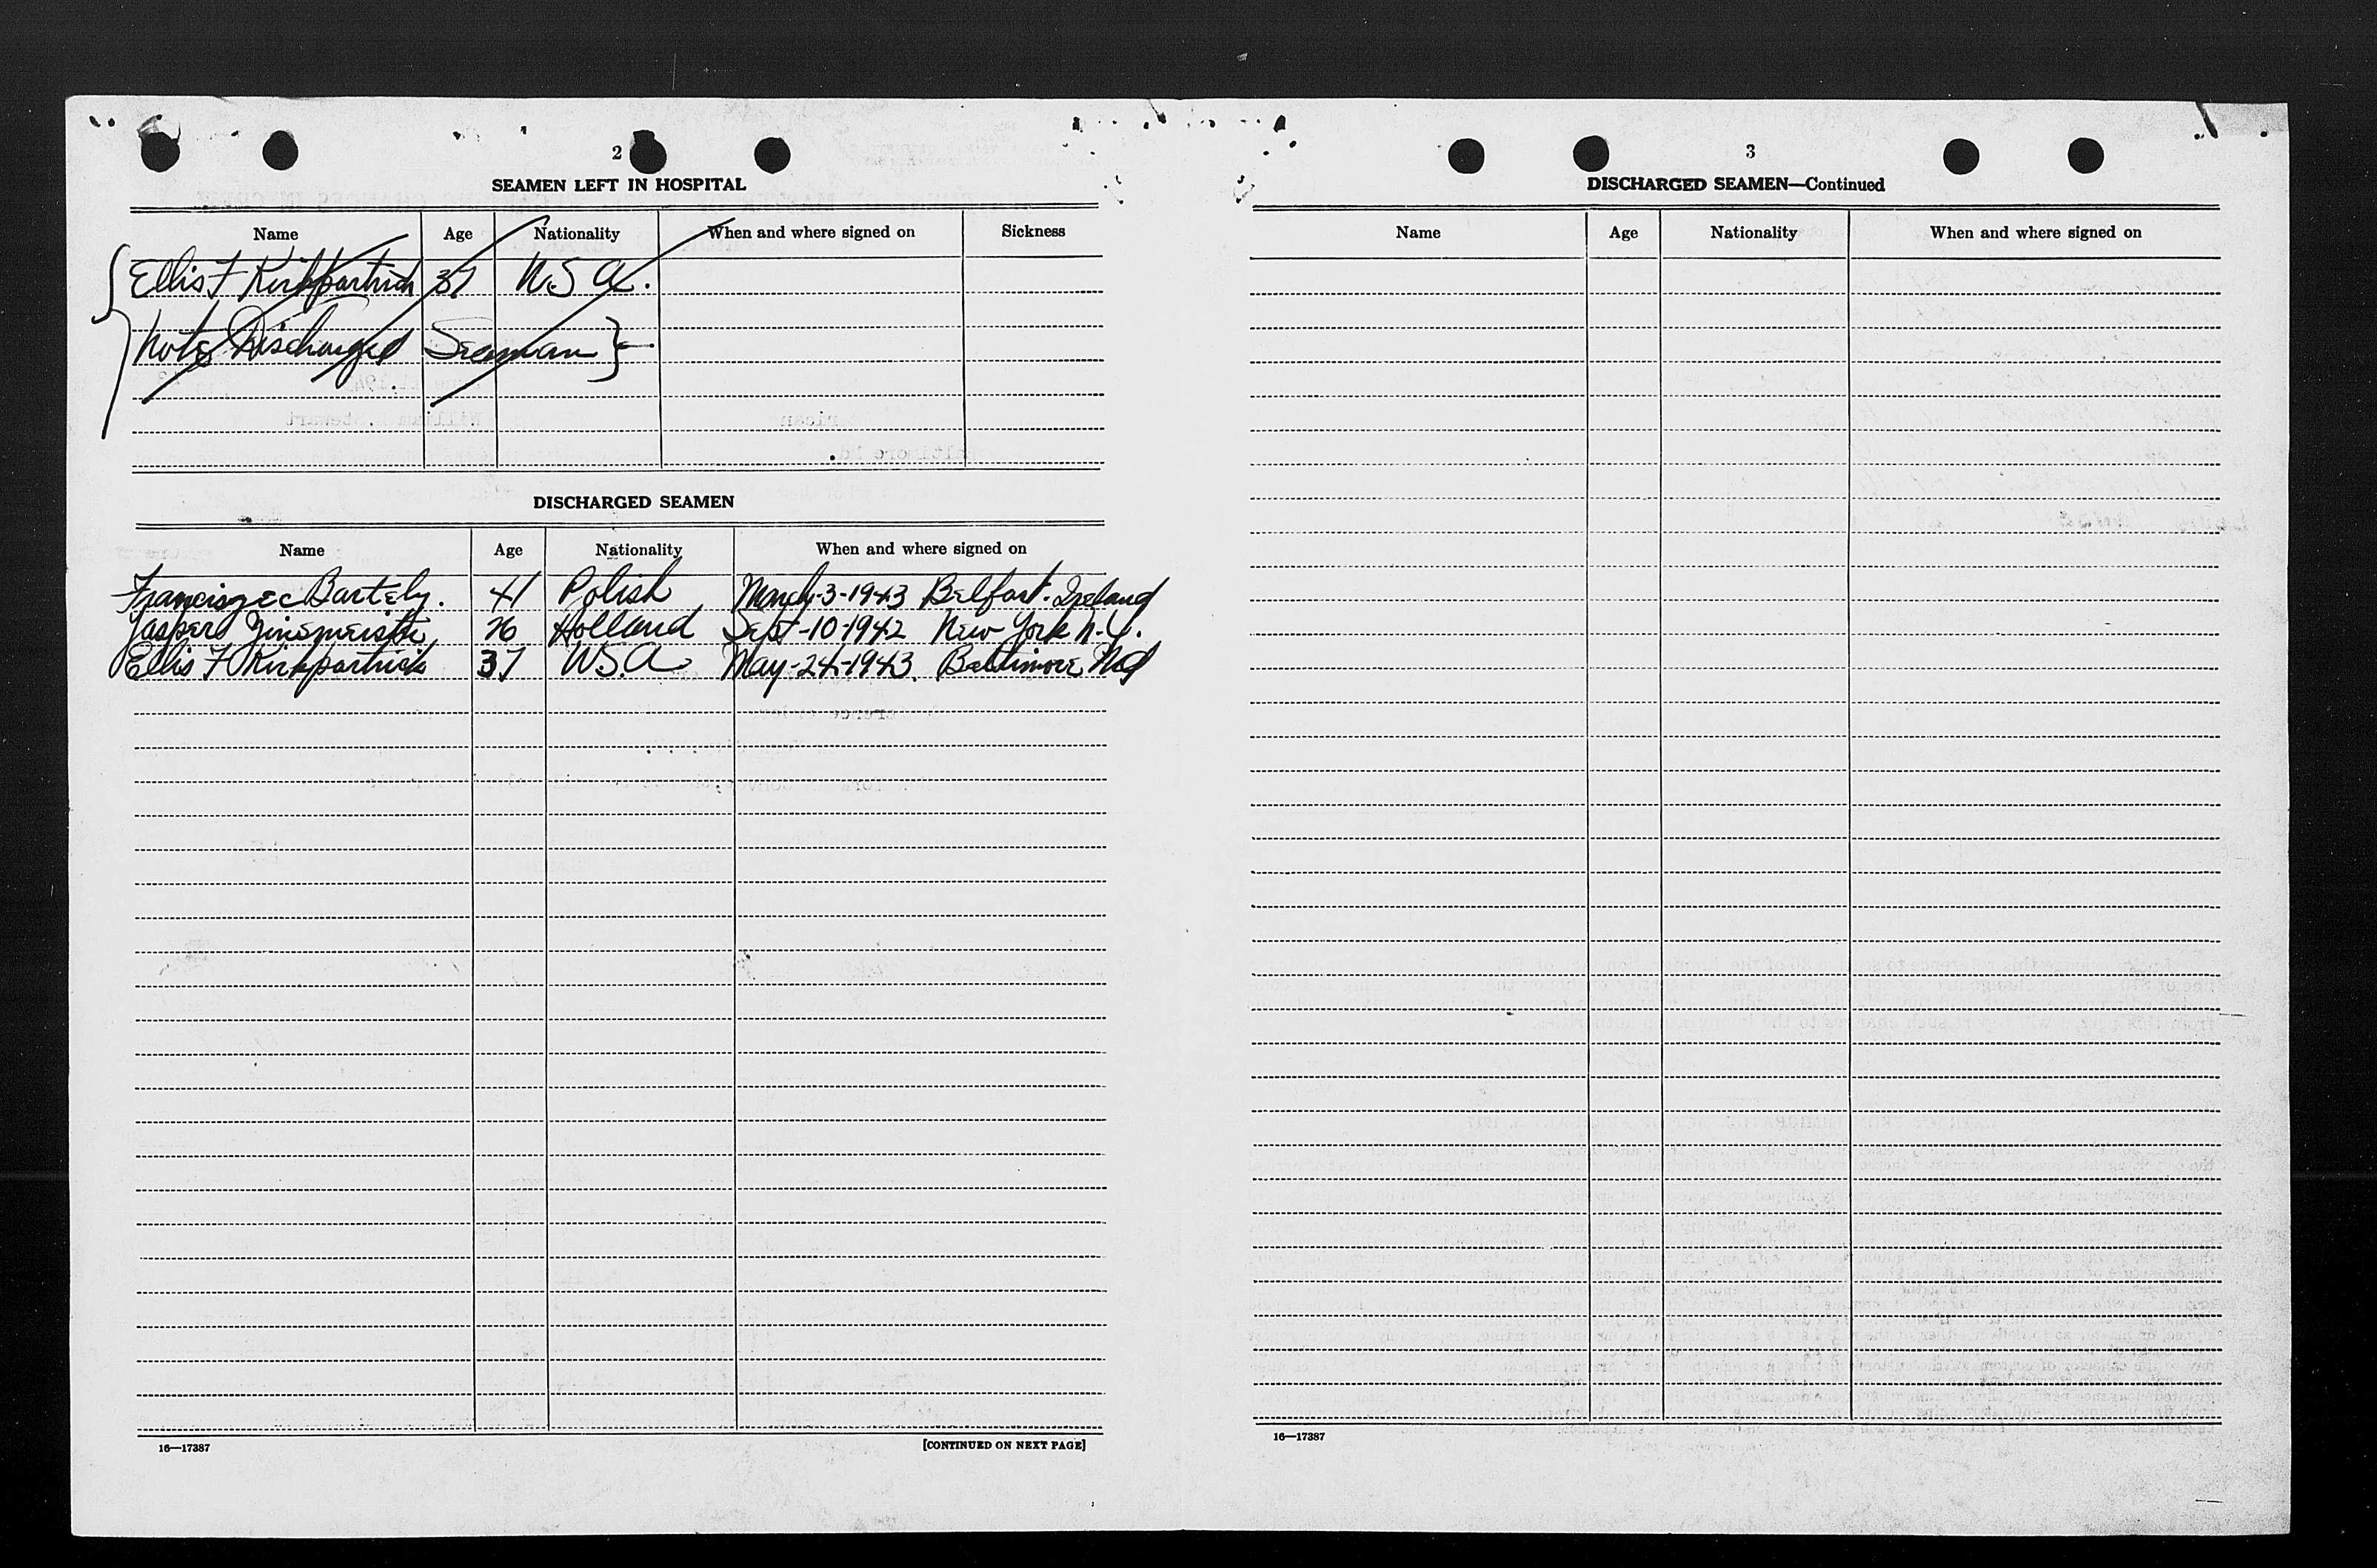 2
SEAMEN LEFT IN HOSPITAL
Name Age Nationality When and where signed on Sickness
Ellis F Kirkpartrick 37 U.S.A.
Note Discharged Seaman
DISCHARGED SEAMEN
Name Age Nationality When and where signed on
Franciszec Bartely. 41 Polish March-3-1943 Belfast. Ireland
Jasper 26 Holland Sept-10-1942 New York N.Y.
Ellis F Kirkpartrick 37 U.S.A May-24-1943. Baltimore Md
16—17387 [CONTINUED ON NEXT PAGE]
3
DISCHARGED SEAMEN—Continued
Name Age Nationality When and where signed on
16—17387